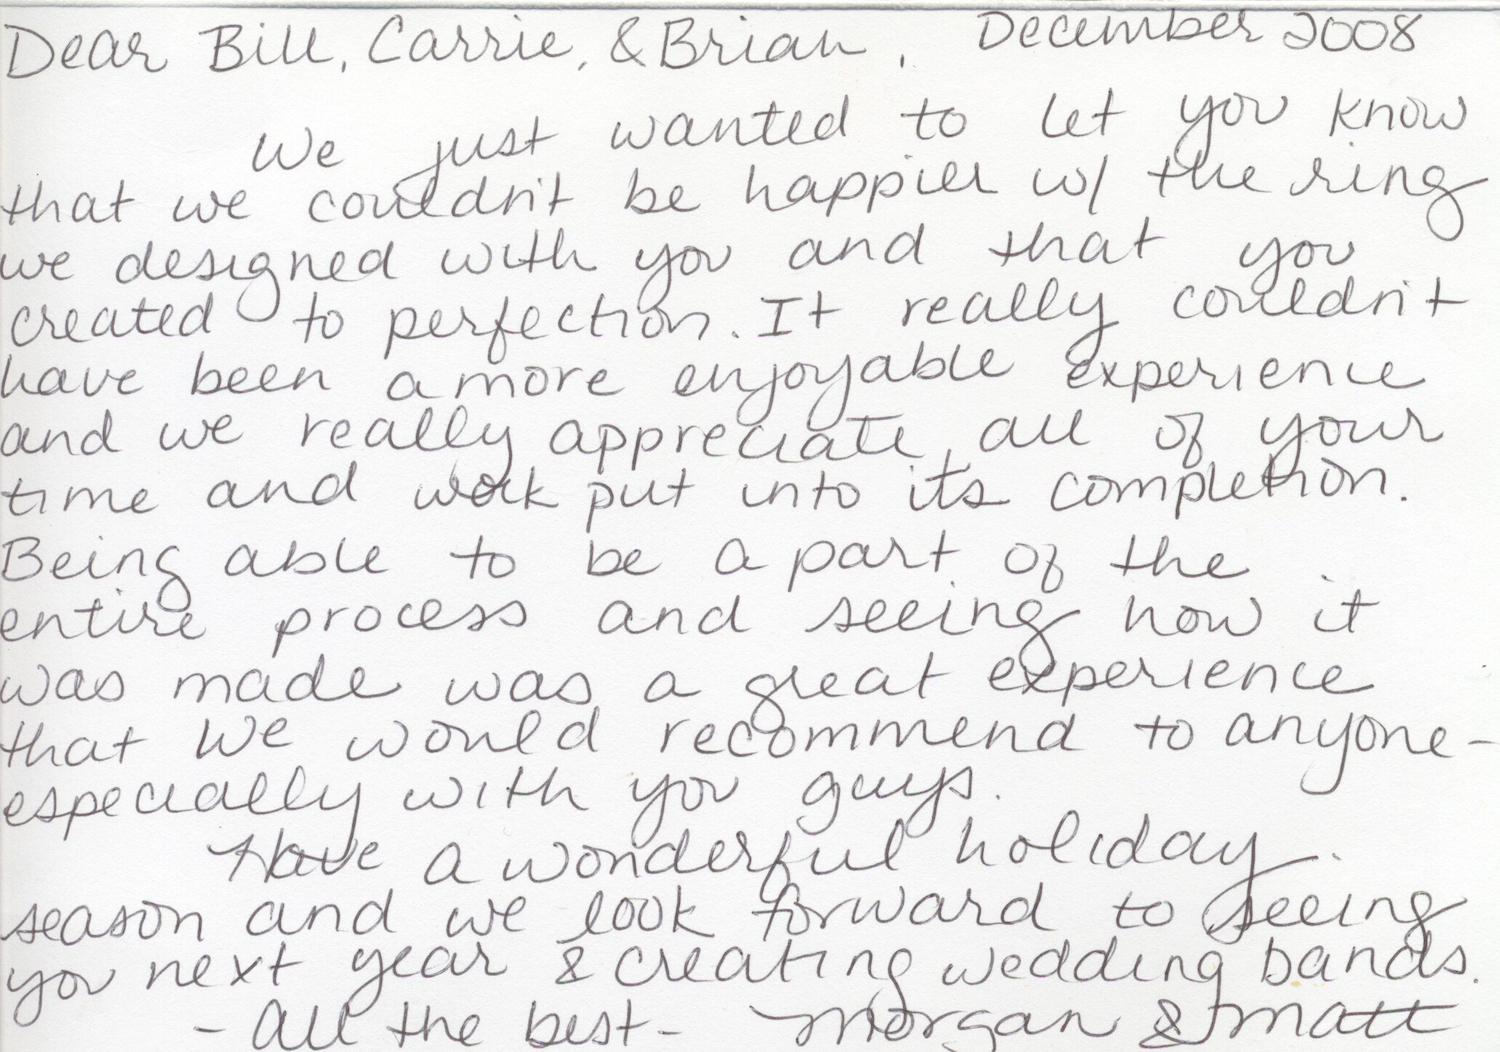 Dear Bill, Carrie, & Brian, December 2008
We just wanted to let you know
that we couldn't be happier w/ the ring
we designed with you and that you
created to perfection. It really couldn't
have been a more enjoyable experience
and we really appreciate all of your
time and work put into its completion.
Being able to be a part of the
entire process and seeing how it
was made was a great experience
that we would recommend to anyone -
especially with you guys.
Have a wonderful holiday
season and we look forward to seeing
you next year & creating wedding bands.
- All the best - Morgan & Matt